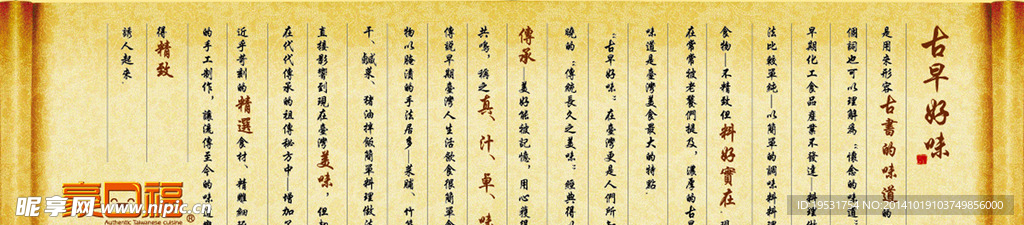 古早好味
是用來形容古書的味道的
個詞也可以理解為：懷念的味道：
早期化工食品產業不發達—料理做
法比較單純—以簡單的調味料料理
食物—不精致但料好實在
在常常被老餐們提及，濃厚的古早
味道是臺灣美食最大的特點
：古早好味：在臺灣更是人們所
曉的：傳統長久之美味：經典得
傳承—美好能被記憶，用心
共鳴，稱之真、汁、卓、味
傳說早期臺灣人生活飲食很簡單食
物以腌漬的手法居多—菜脯、竹
干、鹹菜、豬油拌飯簡單料理做法
直接影響到現在臺灣美味，但
在代代傳承的祖傳秘方中—增加
近乎苛刻的精選食材、精雕細
的手工制作，讓流傳至今的味
得精致
誘人起來
Authentic Taiwanese cuisine
®
昵享网 www.nipic.cn
ID:19531754 NO:20141019103749856000